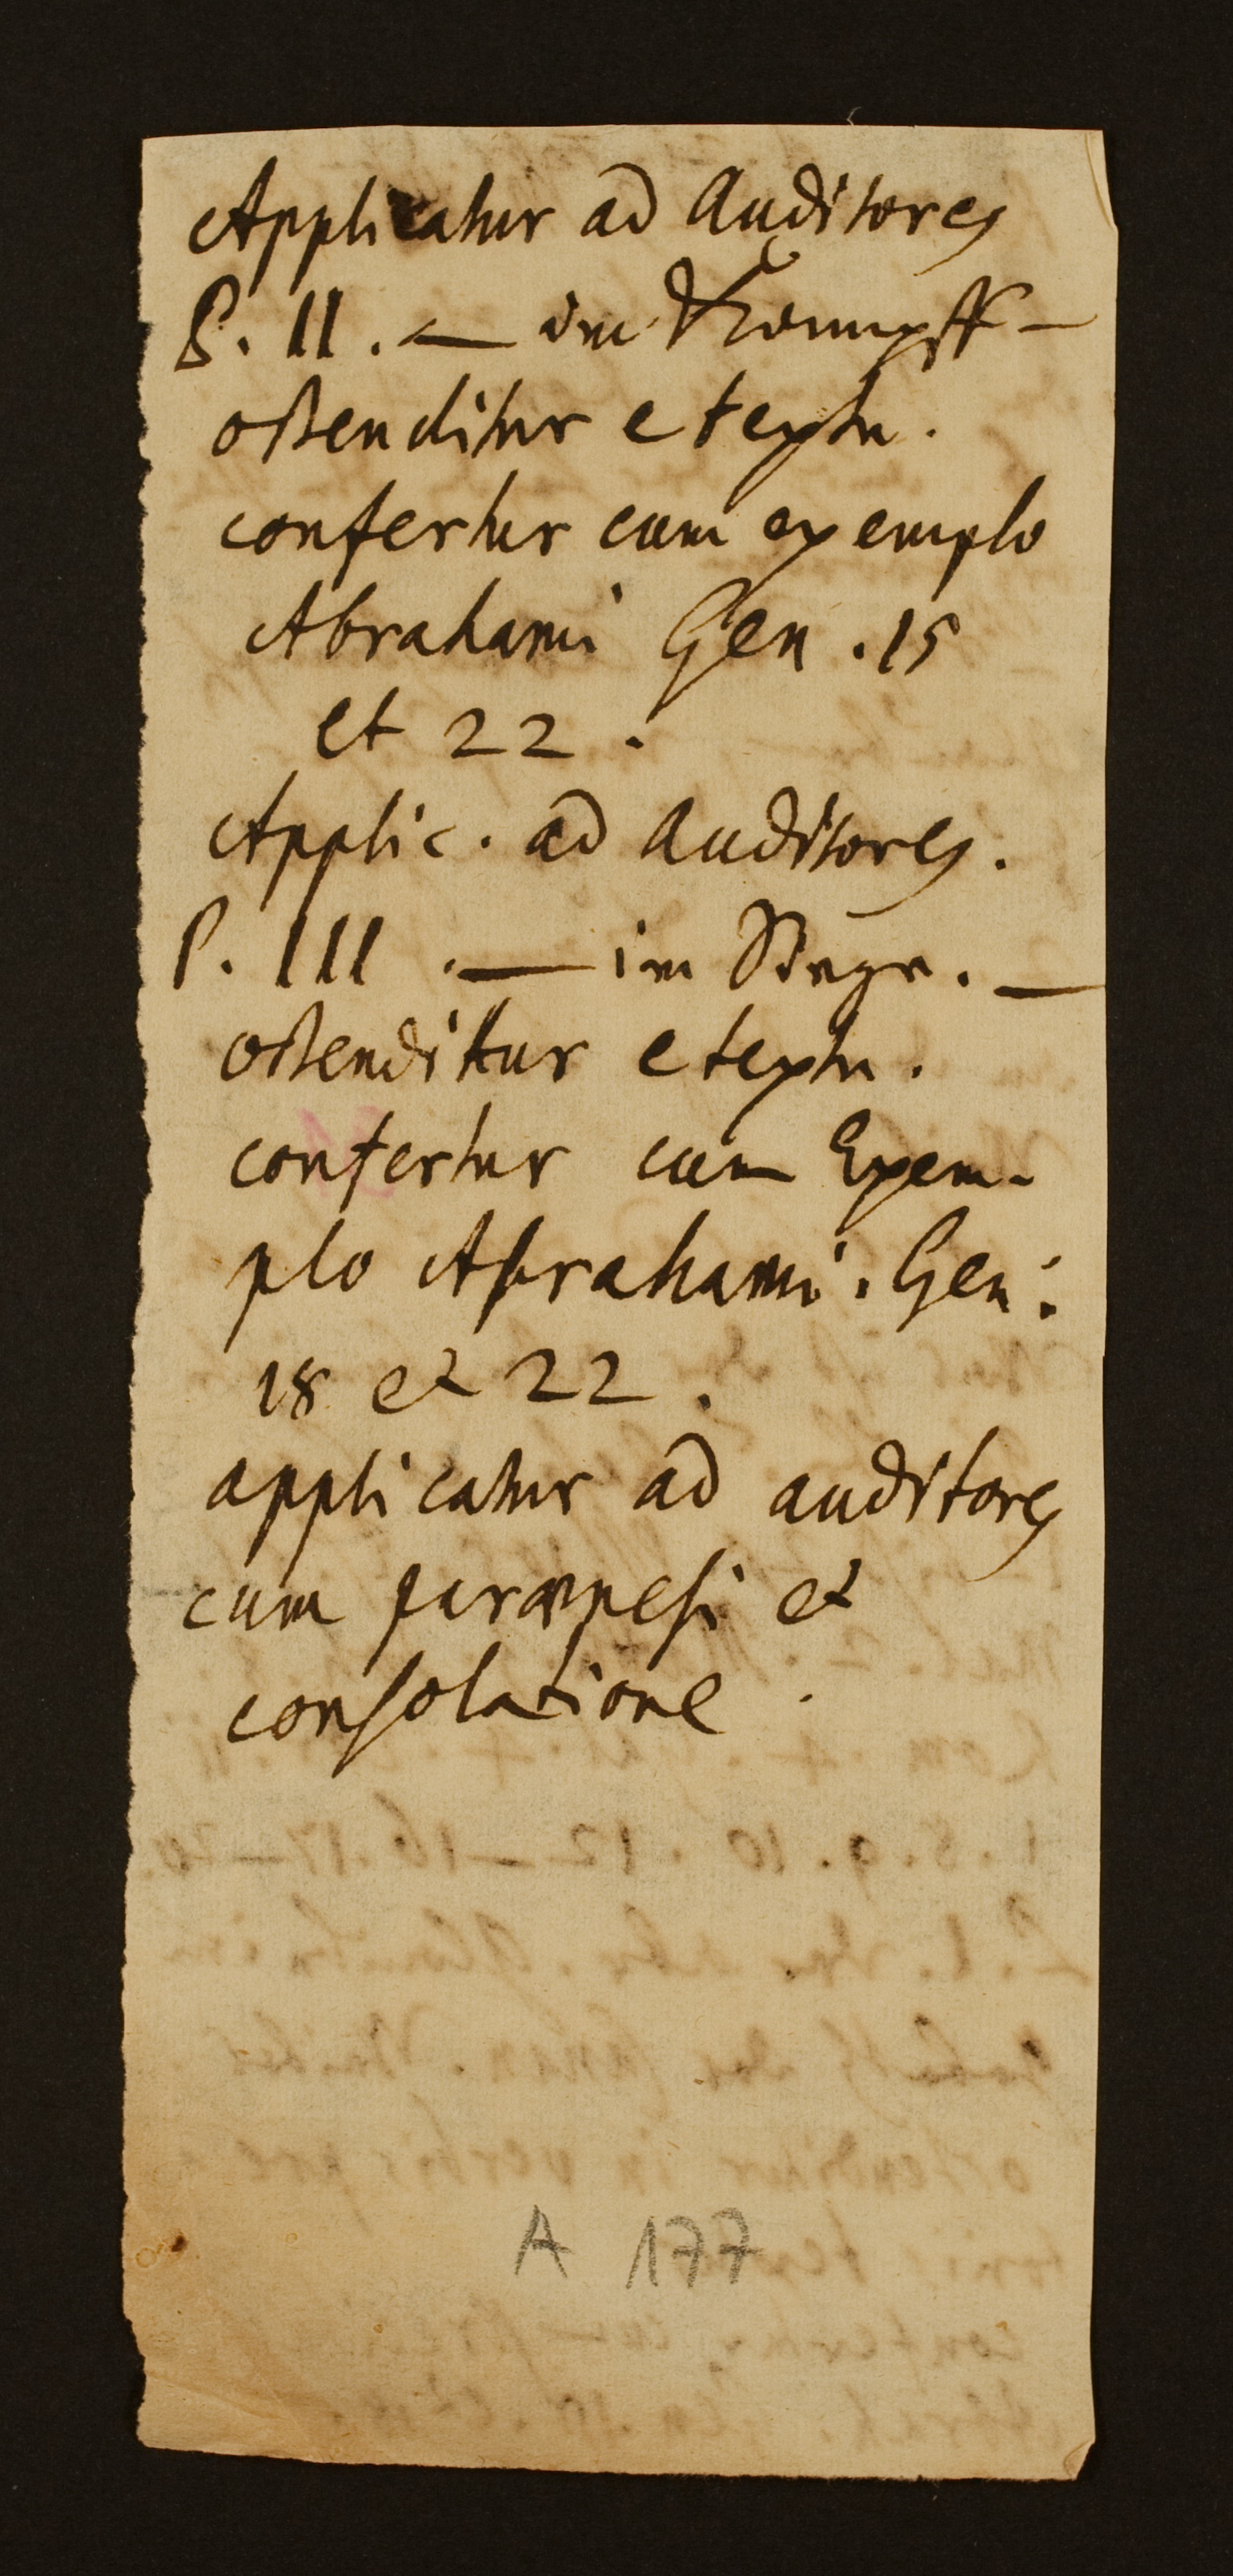 Applicatur ad Auditores
P. II. — im Kampff —
ostenditur e textu.
confertur cum exemplo
Abrahami Gen. 15
et 22.
Applic. ad Auditores.
P. III. — im Siege. —
ostenditur e textu.
confertur cum Exem-
plo Abrahami. Gen:
18 et 22.
applicatur ad auditores
cum parænesi et
consolatione.
A 177